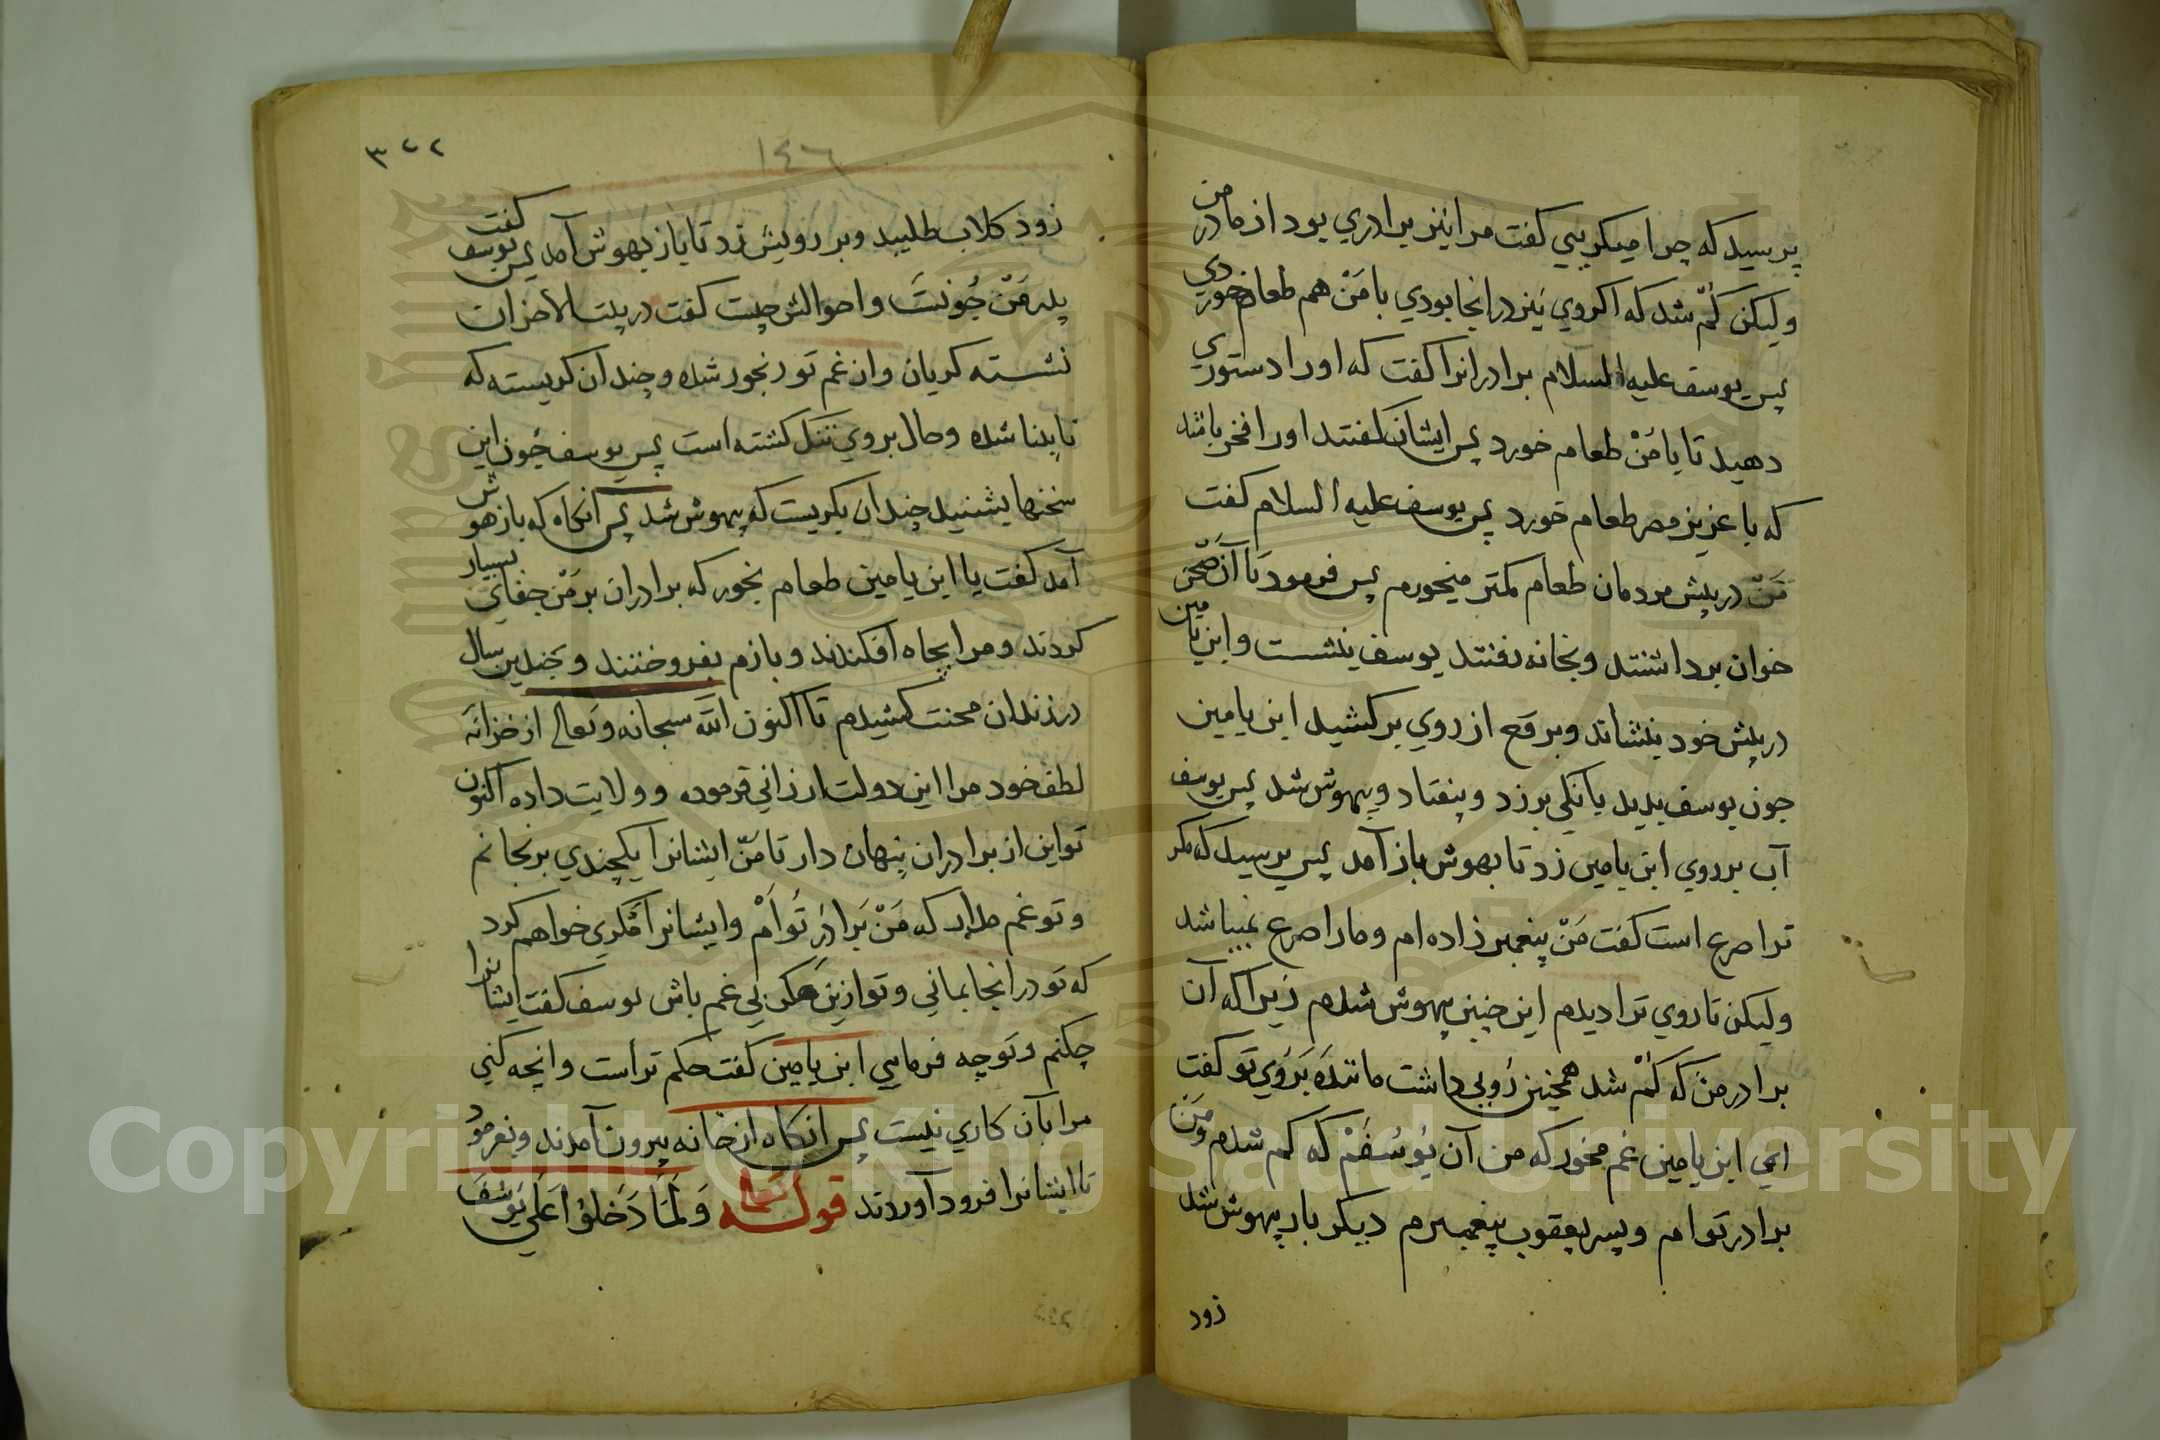 پرسید که چرا میکریی کفت مرا نیز برادری بود از مادر من
ولیکن کم شد که اکر وی نیز درانجا بودی با من هم طعام خوردی
پس یوسف علیه السلام برادرانرا کفت که اورا دستوری
دهید تا با من طعام خورد پس ایشان کفتند اورا فخر باشد
که با عزیز مصر طعام خورد پس یوسف علیه السلام کفت
من درپیش مردمان طعام کمتر میخورم پس فرمود تا آن صحن
خوان برداشتند وبخانه رفتند یوسف بنشست وابن یامین
درپیش خود بنشاند وبرقع از روی برکشید ابن یامین
چون یوسف بدید بانکی برزد وبیفتاد وبیهوش شد پس یوسف
آب برروی ابن یامین زد تا بهوش باز آمد پس پرسید که مکر
ترا صرع است کفت من پیغمبر زاده ام ومارا صرع نمیباشد
ولیکن تا روی ترا دیدم این چنین بیهوش شدم زیرا که آن
برادر من که کم شد همچنین رویی داشت مانندهٔ بروی تو کفت
ای ابن یامین غم مخور که من آن یوسفم که کم شدم ومن
برادر توام وپسر یعقوب پیغمبرم دیکر بار بیهوش شد
زود
٣٧٢
١٤٦
زود کلاب طلبید وبر رویش زد تا باز بهوش آمد پس یوسف کفت
پدر من چونست واحوالش چیست کفت در بیت الاحزان
نشسته کریان واز غم تو رنجور شده وچندان کریسته که
نابینا شده وحال بروی تنک کشته است پس یوسف چون این
سخنها بشنید چندان بکریست که بیهوش شد پس آنکاه که باز هوش
آمد کفت یا ابن یامین طعام بخور که برادران بر من جفای بسیار
کردند ومرا بچاه افکندند وبازم بفروختند وچندین سال
درزندان محنت کشیدم تا اکنون الله سبحانه وتعالی از خزانه
لطف خود مرا این دولت ارزانی فرموده وولایت داده اکنون
تو این از برادران پنهان دار تا من ایشانرا یکچندی برنجانم
وتو غم مدار که من برادر توام وایشانرا مکری خواهم کرد
که تو درانجا بمانی وتو ازین مکر بی غم باش یوسف کفت ایشانرا
چکنم وتو چه فرمایی ابن یامین کفت حکم تراست وانچه کنی
مرا بآن کاری نیست پس آنکاه ازخانه بیرون آمدند وبفرمود
تا ایشانرا فرود آوردند قوله تعالی وَلَمَّا دَخَلُوا عَلَى يُوسُفَ
Copyright © King Saud University